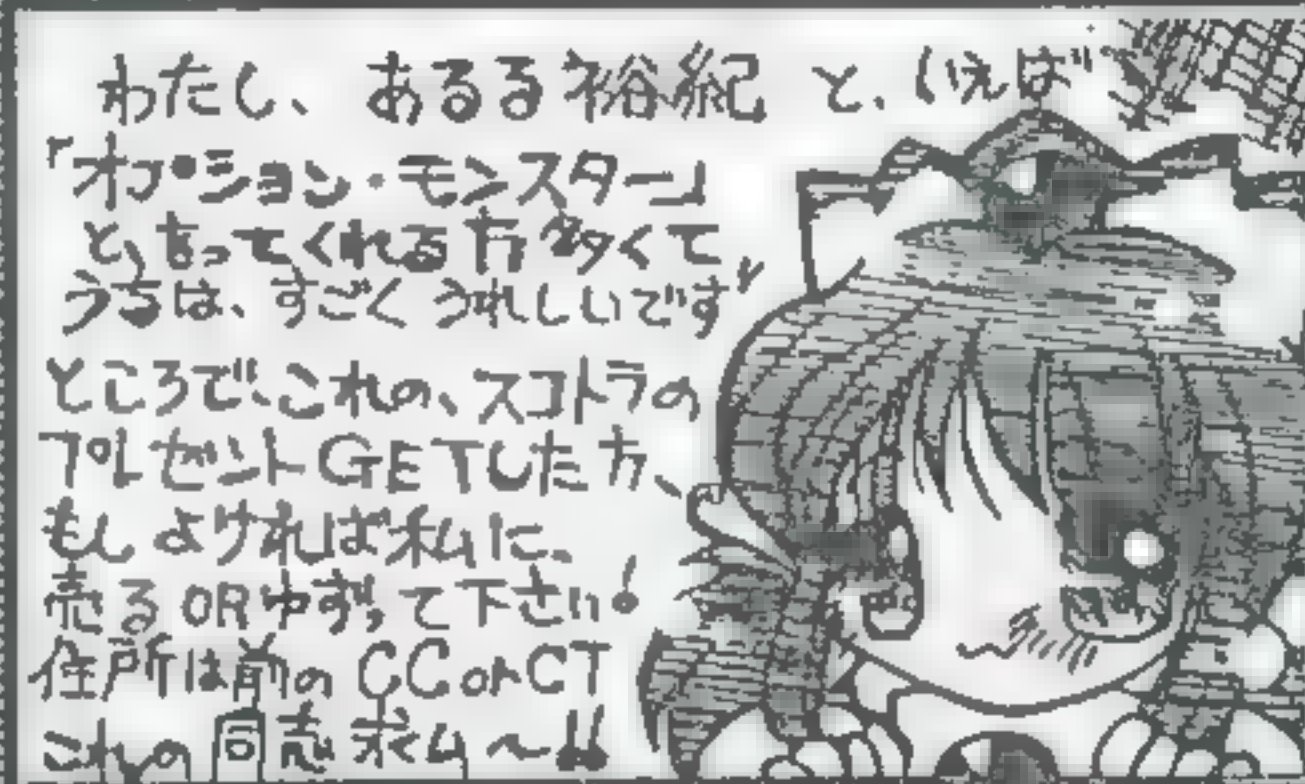 わたし、あるる裕紀と、いえば
「オプション・モンスター」
と、言ってくれる方が多くて
うちは、すごくうれしいです
ところで、これの、スコトラの
プレゼントGETした方、
もしよければ私に、
売るORゆずって下さい!
住所は前のCCorCT
これの 同 売 求ム〜!!